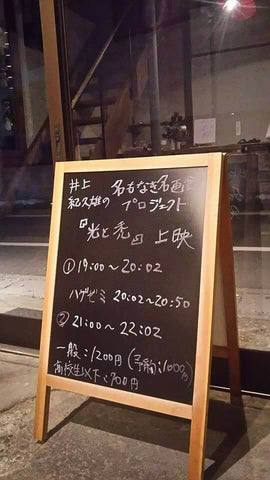 井上
紀久雄の
名もなき名画座
プロジェクト
『光と禿』上映
① 19:00〜20:02
ハゲゼミ 20:02〜20:50
② 21:00〜22:02
一般:1200円(予約:1000円)
高校生以下:700円